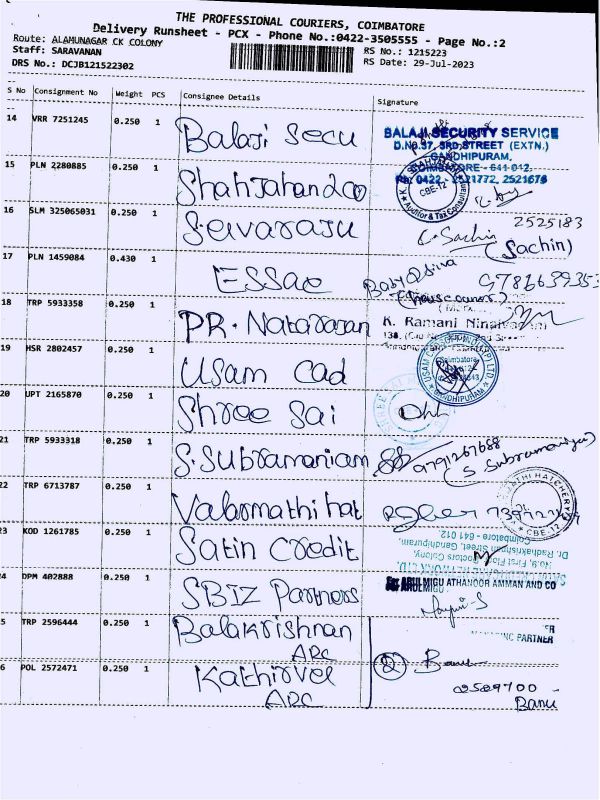 THE PROFESSIONAL COURIERS, COIMBATORE
Delivery Runsheet - PCX - Phone No.:0422-3505555 - Page No.:2
Route: ALAMUNAGAR CK COLONY
RS No.: 1215223
Staff: SARAVANAN
RS Date: 29-Jul-2023
DRS No.: DCJB121522302
S No Consignment No Weight PCS Consignee Details Signature
14 VRR 7251245 0.250 1 Balaji Secu
BALAJI SECURITY SERVICE
D.No.37, 3RD STREET (EXTN.)
GANDHIPURAM,
COIMBATORE - 641 012.
PH: 0422 - 2521772, 2521676
15 PLN 2280885 0.250 1 Shahjahan & co
Auditor & Tax Consultant
CBE-12
16 SLM 325065031 0.250 1 Selvaraju
2525183
Sachin
(Sachin)
17 PLN 1459084 0.430 1 ESSae
(House owner)
18 TRP 5933358 0.250 1 PR. Natarasan
K. Ramani
19 HSR 2802457 0.250 1 Usam cad
USAM
GANDHIPURAM
20 UPT 2165870 0.250 1 Shree Sai
SHREE SAI
21 TRP 5933318 0.250 1 S. Subramaniam
(S Subramaniyan)
22 TRP 6713787 0.250 1 Valarmathi hat
HATCHERY
CBE-12
23 KOD 1261785 0.250 1 Satin Credit
No.9, First Floor, Doctors Colony,
Dr. Radhakrishnan Street, Gandhipuram,
Coimbatore - 641 012.
24 DPM 402888 0.250 1 SBIZ Partners
For ARULMIGU ATHANOOR AMMAN AND CO
25 TRP 2596444 0.250 1 Balakrishnan
ARC
PARTNER
26 POL 2572471 0.250 1 Kathirvel
ARC
Banu